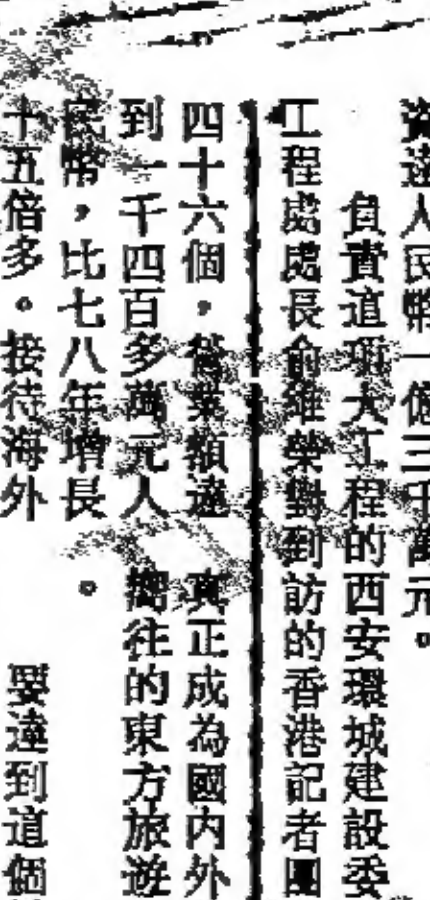 資達人民幣一億三千萬元。
負責這項大工程的西安環城建設委
工程處處長俞榮對到訪的香港記者團
四十六個，營業額達
到一千四百多萬元人
民幣，比七八年增長
十五倍多。接待海外
真正成為國內外
嚮往的東方旅遊
。
要達到這個